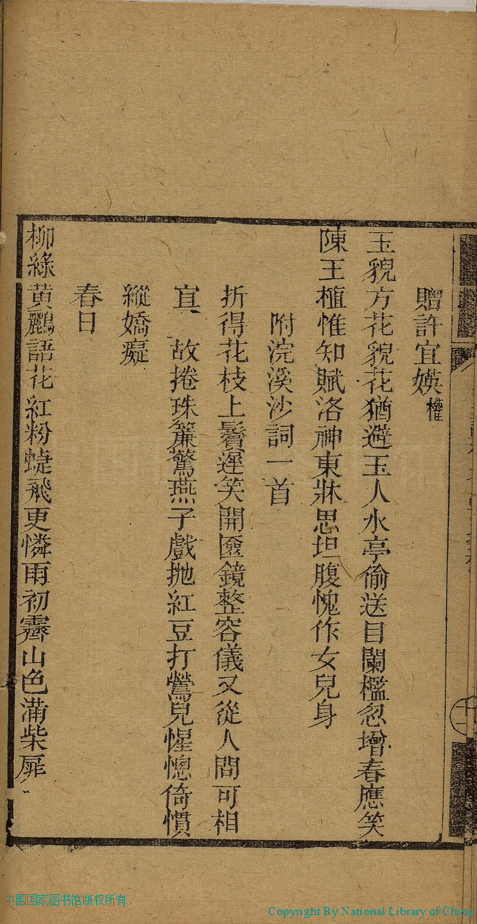 贈許宜媖權
玉貌方花貌花猶避玉人水亭偷送目闌檻忽增春應笑
陳王植惟知賦洛神東牀思坦腹愧作女兒身
附浣溪沙詞一首
折得花枝上鬢遲笑開匳鏡整容儀又從人問可相
宜 故捲珠簾驚燕子戲拋紅豆打鶯兒惺憁倚慣
縱嬌癡
春日
柳綠黃鸝語花紅粉蜨飛更憐雨初霽山色滿柴扉
中国国家图书馆版权所有
Copyright By National Library of China